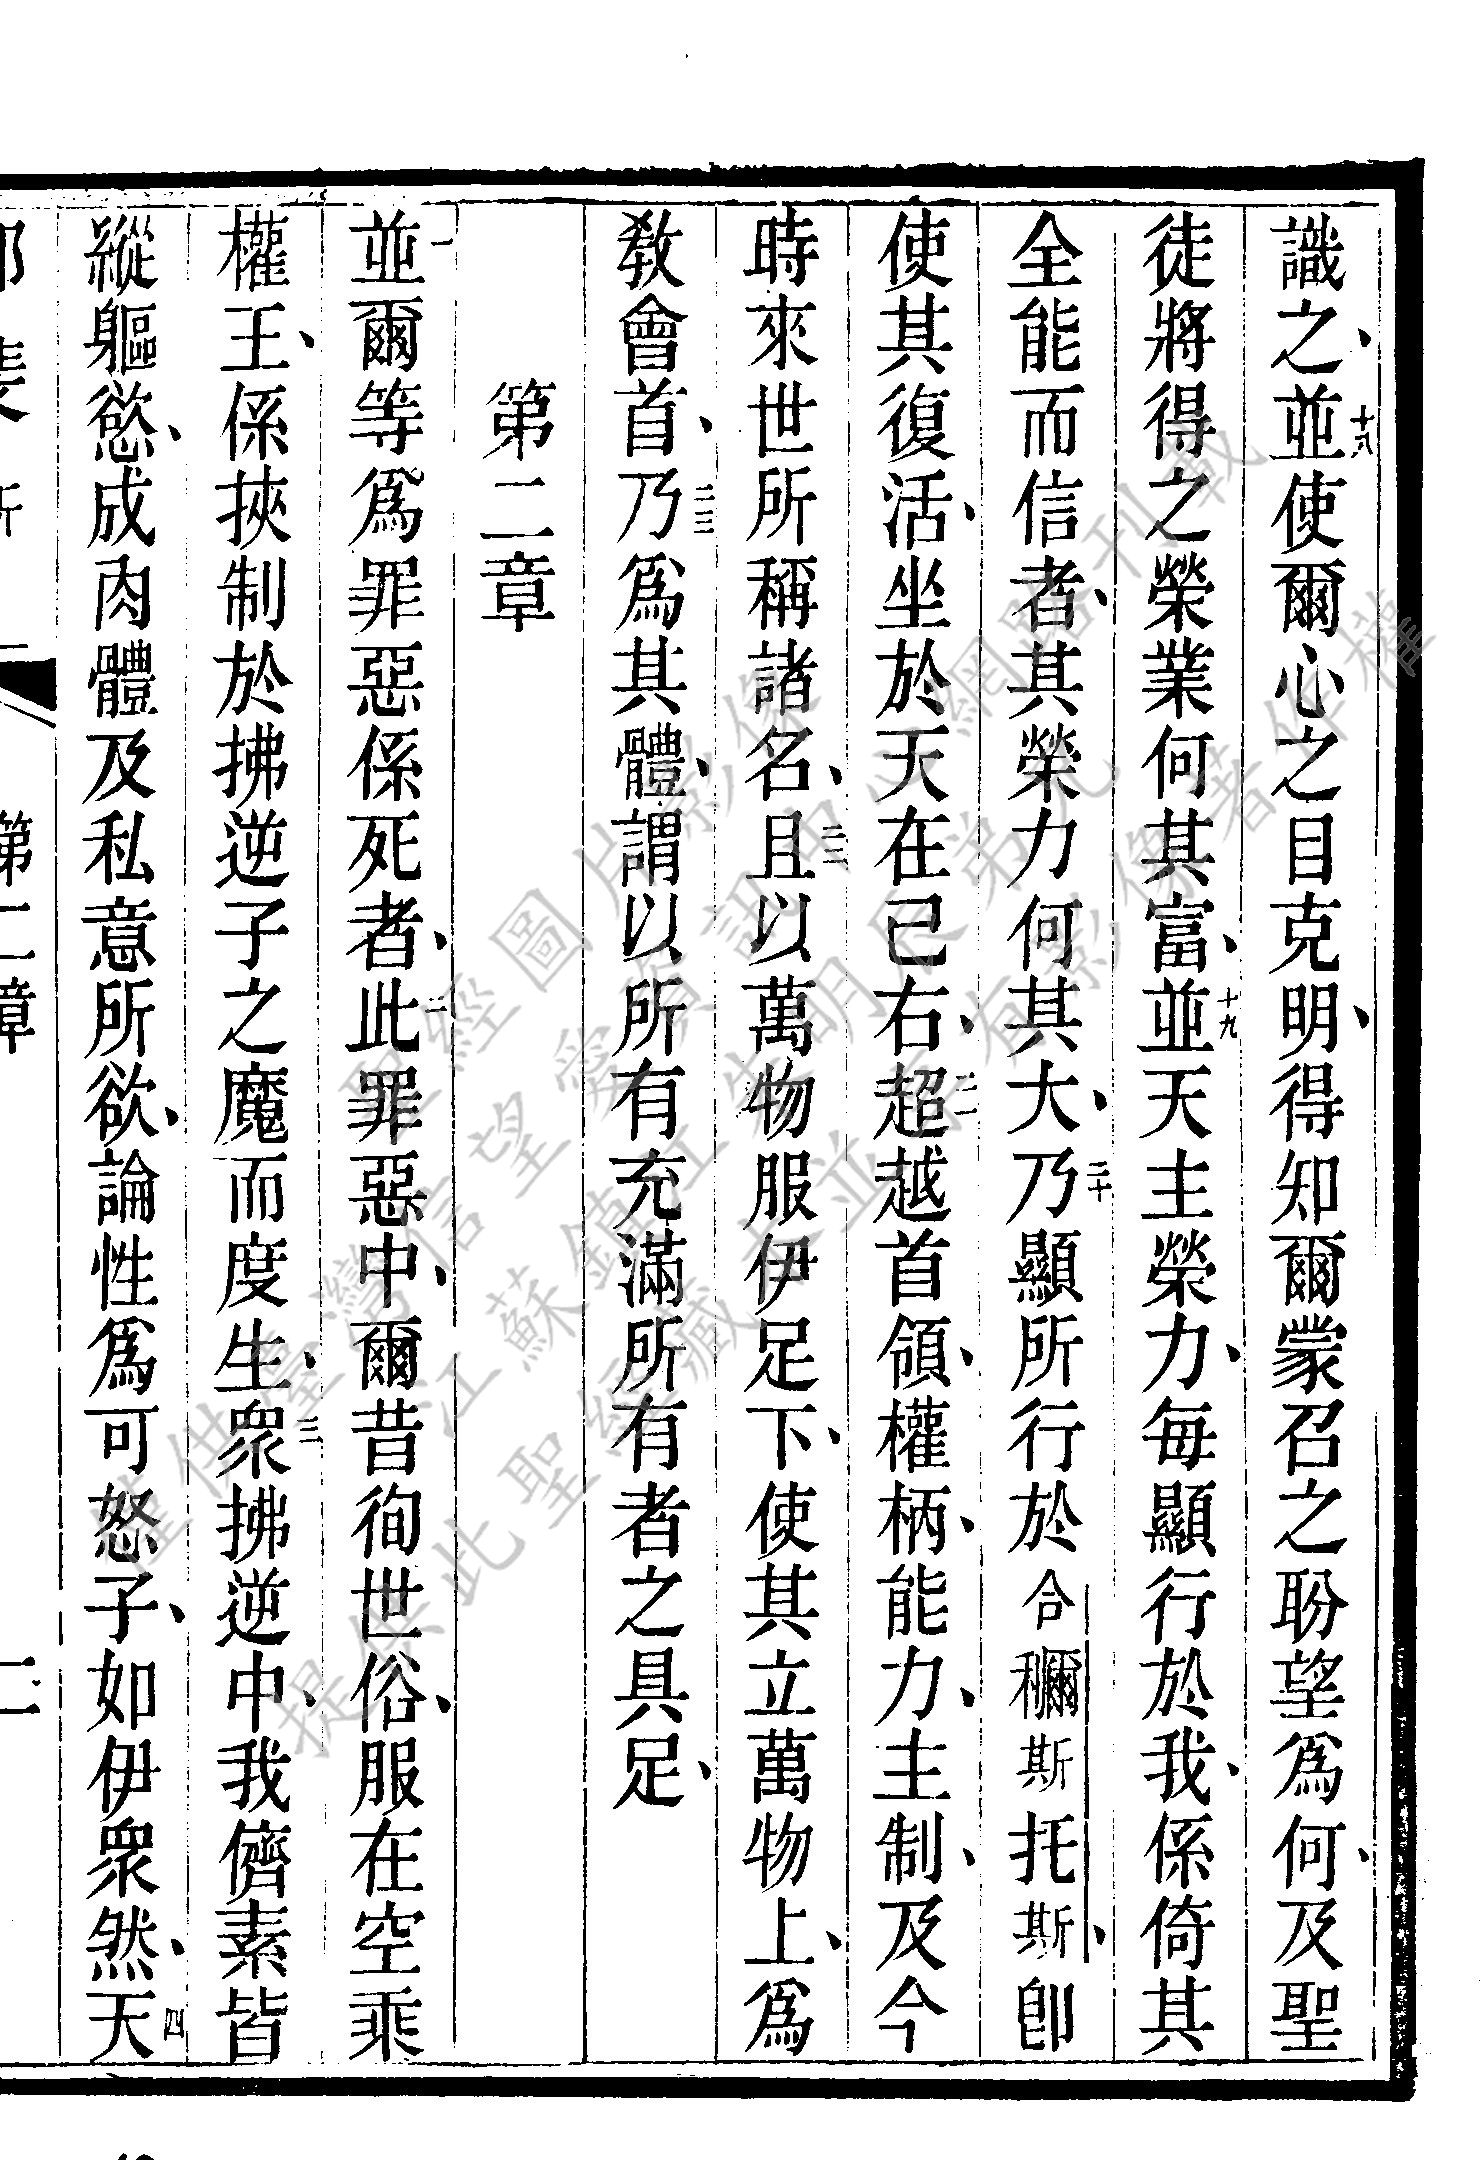 識之、十八並使爾心之目克明、得知爾蒙召之盼望爲何、及聖
徒將得之榮業何其富、十九並天主榮力、每顯行於我、係倚其
全能而信者、其榮力何其大、二十乃顯所行於合穪斯托斯、卽
使其復活、坐於天在己右、二一超越首領、權柄、能力、主制、及今
時來世所稱諸名、二二且以萬物服伊足下、使其立萬物上、爲
敎會首、二三乃爲其體、謂以所有充滿所有者之具足、
第二章
一並爾等爲罪惡係死者、二此罪惡中、爾昔徇世俗、服在空乘
權王、係挾制於拂逆子之魔而度生、三衆拂逆中、我儕素皆
縱軀慾、成肉體及私意所欲、論性爲可怒子、如伊衆然、四天
第二章
二
僅供臺灣信望愛聖經圖片影像
提供此聖經藏